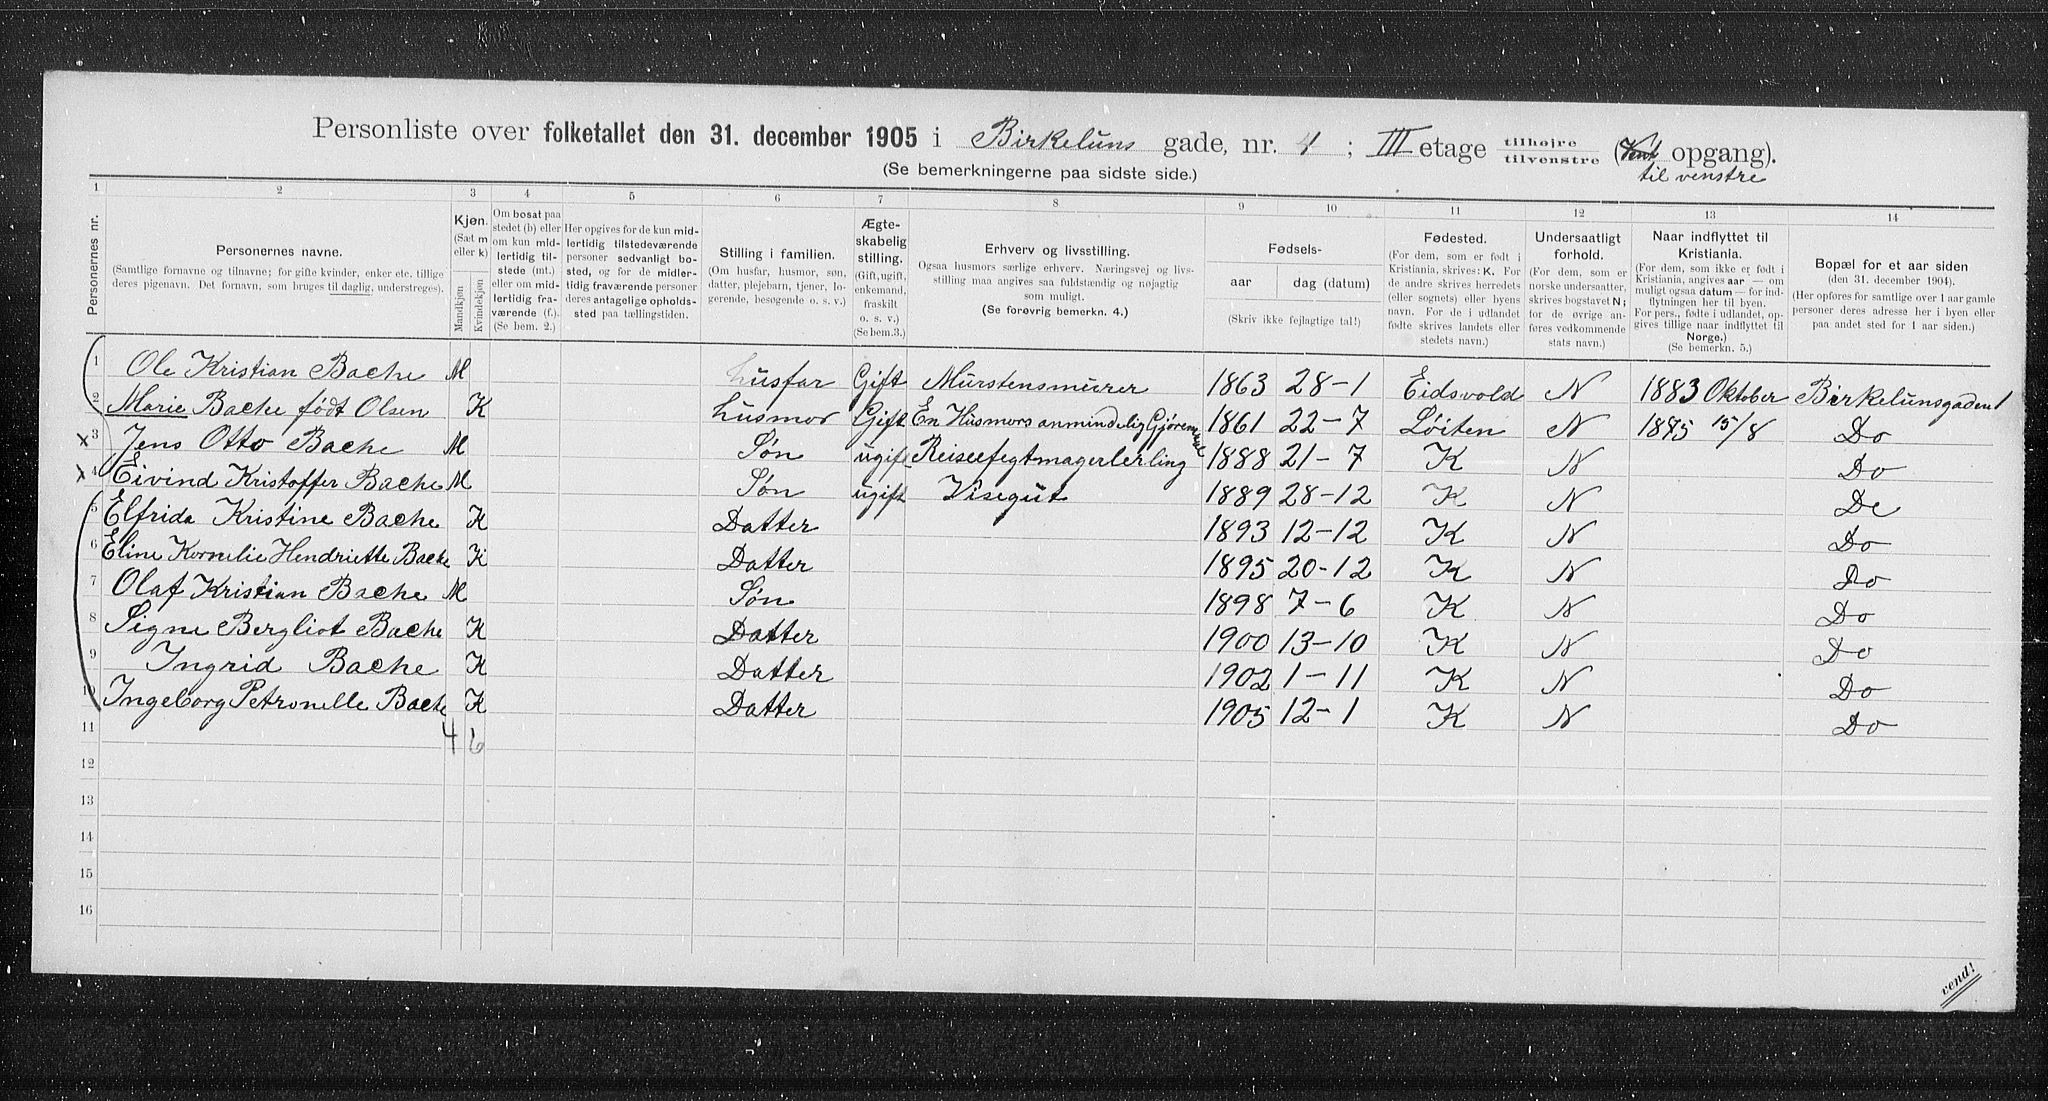 Personliste over folketallet den 31. december 1905 i Birkeluns gade, nr. 1; III etage tilhøjre tilvenstre ( opgang).
til venstre
(Se bemerkningerne paa sidste side.)
1 2 3 4 5 6 7 8 9 10 11 12 13 14
Personernes nr.
Personernes navne.
(Samtlige fornavne og tilnavne; for gifte kvinder, enker etc. tillige
deres pigenavn. Det fornavn, som bruges til daglig, understreges).
Kjøn.
(Sæt m
eller k)
Mandkjøn
Kvindekjøn
Om bosat paa
stedet (b) eller
om kun mid-
lertidig til-
stede (mt.)
eller om mid-
lertidig fra-
værende (f.).
(Se bem. 2.)
Her opgives for de kun mid-
lertidig tilstedeværende
personer sedvanlig bo-
sted, og for de midler-
tidig fraværende personer
deres antagelige opholds-
sted paa tællingstiden.
Stilling i familien.
(Om husfar, husmor, søn,
datter, plejebarn, tjener, lo-
gerende, besøgende o. s. v.)
Ægte-
skabelig
stilling.
(Gift, ugift,
enkemand,
fraskilt
o. s. v.)
(Se bem.3.)
Erhverv og livsstilling.
Ogsaa husmors særlige erhverv. Næringsvej og livs-
stilling maa angives saa fuldstændig og nøjagtig
som muligt.
(Se forøvrig bemerkn. 4.)
Fødsels-
aar dag (datum)
(Skriv ikke fejlagtige tal!)
Fødested.
(For dem, som er født i
Kristiania, skrives: K. For
de andre skrives herredets
(eller sognets) eller byens
navn. For de i udlandet
fødte skrives landets eller
stedets navn.)
Undersaatligt
forhold.
(For dem, som er
norske undersaatter,
skrives bogstavet N;
for de øvrige an-
føres vedkommende
stats navn.)
Naar indflyttet til
Kristiania.
(For dem, som ikke er født i
Kristiania, angives aar — om
muligt ogsaa datum — for ind-
flytningen her til byen.
For pers., fødte i udlandet, op-
gives tillige naar indflyttet til
Norge.)
(Se bemerkn. 5.)
Bopæl for et aar siden
(den 31. december 1904).
(Her opføres for samtlige over 1 aar gamle
personer deres adresse her i byen eller
paa andet sted for 1 aar siden.)
1 Ole Kristian Bache M husfar Gift Murstensmurer 1863 28-1 Eidsvold N 1883 Oktober Birkelunsgaden 1
2 Marie Bache født Olsen K husmor Gift En Husmors anmindelig Gjøremaal 1861 22-7 Løiten N 1875 15/8 Do
x3 Jens Otto Bache M Søn ugift Reiseefegtmagerlerling 1888 21-7 K N Do
x4 Eivind Kristoffer Bache M Søn ugift Visegut 1889 28-12 K N Do
5 Elfrida Kristine Bache K Datter 1893 12-12 K N Do
6 Eline Kornelie Hendriette Bache K Datter 1895 20-12 K N Do
7 Olaf Kristian Bache M Søn 1898 7-6 K N Do
8 Signe Bergliot Bache K Datter 1900 13-10 K N Do
9 Ingrid Bache K Datter 1902 1-11 K N Do
10 Ingeborg Petronelle Bache K Datter 1905 12-1 K N Do
11 4 6
12
13
14
15
16
vend!